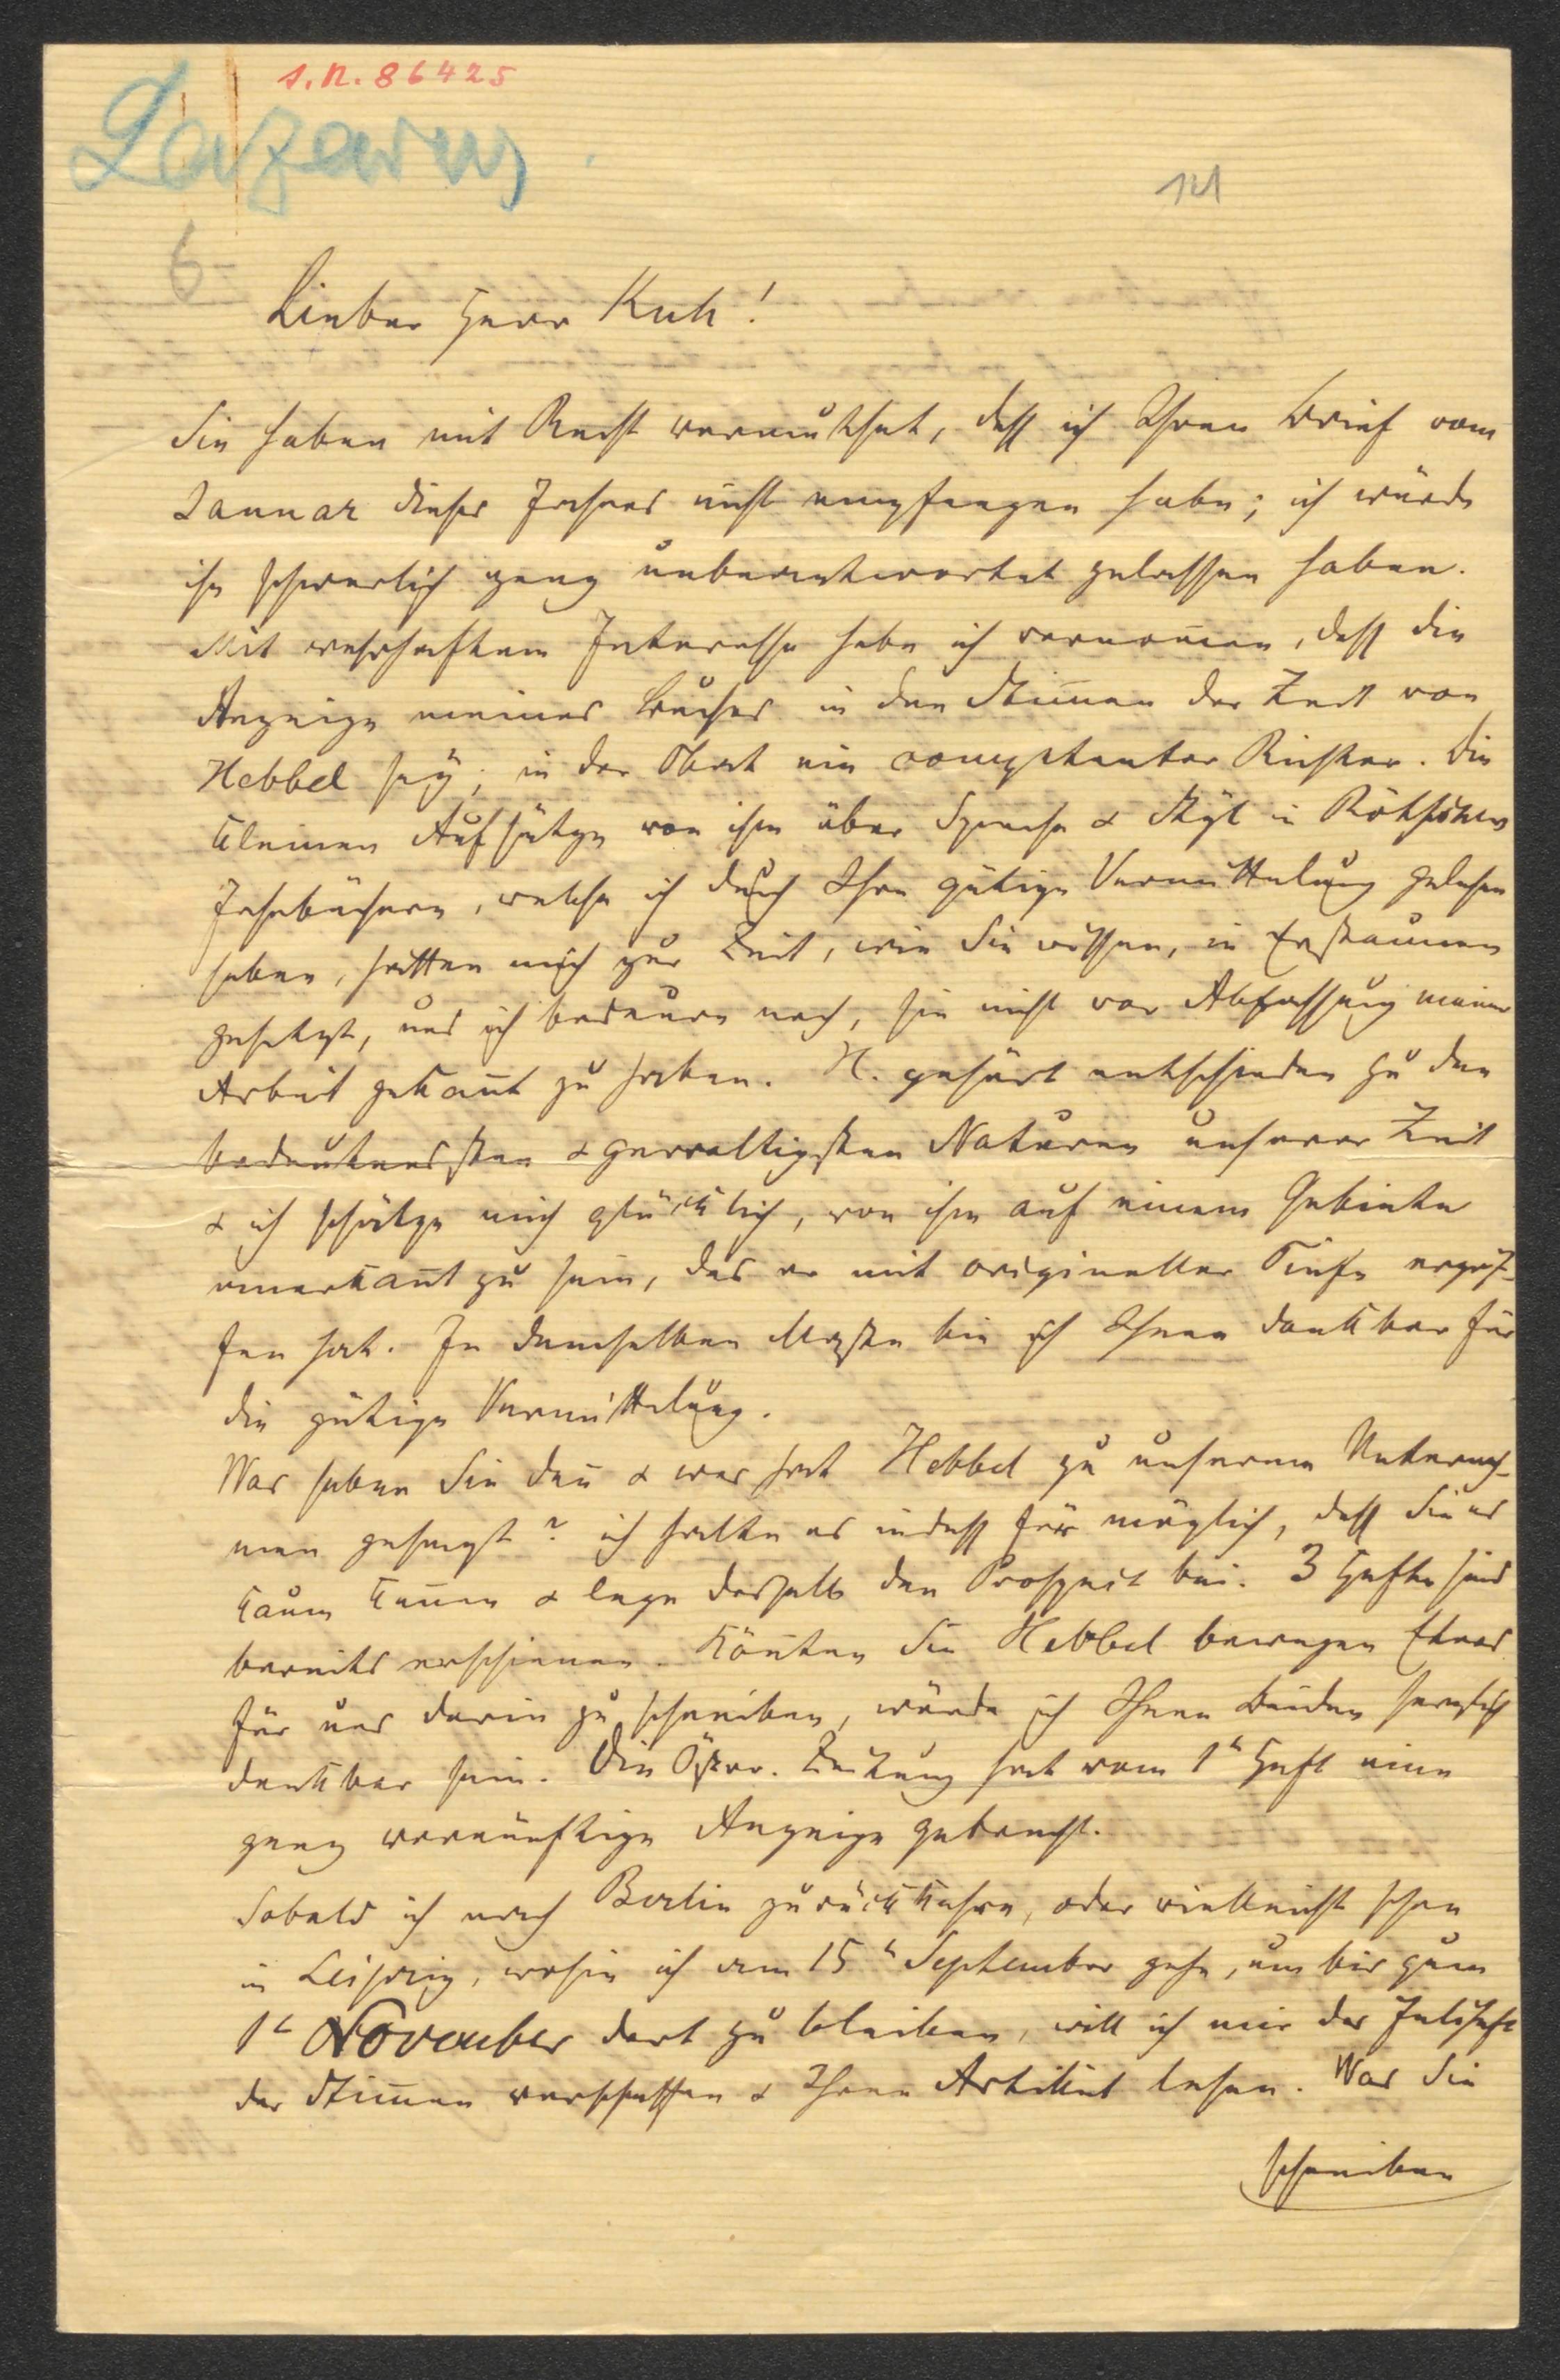 s. n. 86425
Lazarus
141
6
Lieber Herr Kuh!
Sie haben mit Recht vermuthet, daß ich Ihren Brief vom
Januar dieses Jahres nicht empfangen habe; ich würde
ihn schwerlich ganz unbeantwortet gelassen haben.
Mit wahrhaftem Interesse habe ich vernom̄en, daß die
Anzeige meines Buches in den Stim̄en der Zeit von
Hebbel sey; in der That ein competenter Richter. Die
kleinen Aufsätze von ihm über Sprache & Styl in Rötschers
Jahrbüchern, welche ich durch Ihre gütige Vermittelung gelesen
habe, hatten mich zur Zeit, wie Sie wissen, in Erstaunen
gesetzt, und ich bedaure noch, sie nicht vor Abfassung meiner
Arbeit gekan̄t zu haben. H. gehört entschieden zu den
bedeutendsten & gewaltigsten Naturen unserer Zeit
& ich schätze mich glücklich, von ihm auf einem Gebiete
anerkan̄t zu sein, das er mit origineller Tiefe ergrif-
fen hat. In demselben Maße bin ich Ihnen dankbar für
die gütige Vermittelung.
Was haben Sie den̄ & was hat Hebbel zu unserem Unterneh-
men gesagt? ich halte es indeß für möglich, daß Sie es
kaum ken̄en & lege deshalb den Prospect bei. 3 Hefte sind
bereits erschienen. Kön̄ten Sie Hebbel bewegen Etwas
für uns darin zu schreiben, würde ich Ihnen Beiden herzlich
dankbar sein. Die Östrr. Zeitung hat vom 1n Heft eine
ganz vernünftige Anzeige gebracht.
Sobald ich nach Berlin zurückkehre, oder vielleicht schon
in Leipzig, wohin ich am 15n September gehe, um bis zum
1n November dort zu bleiben, will ich mir das Juliheft
der Stim̄en verschaffen & Ihren Artikel lesen. Was Sie
schreiben